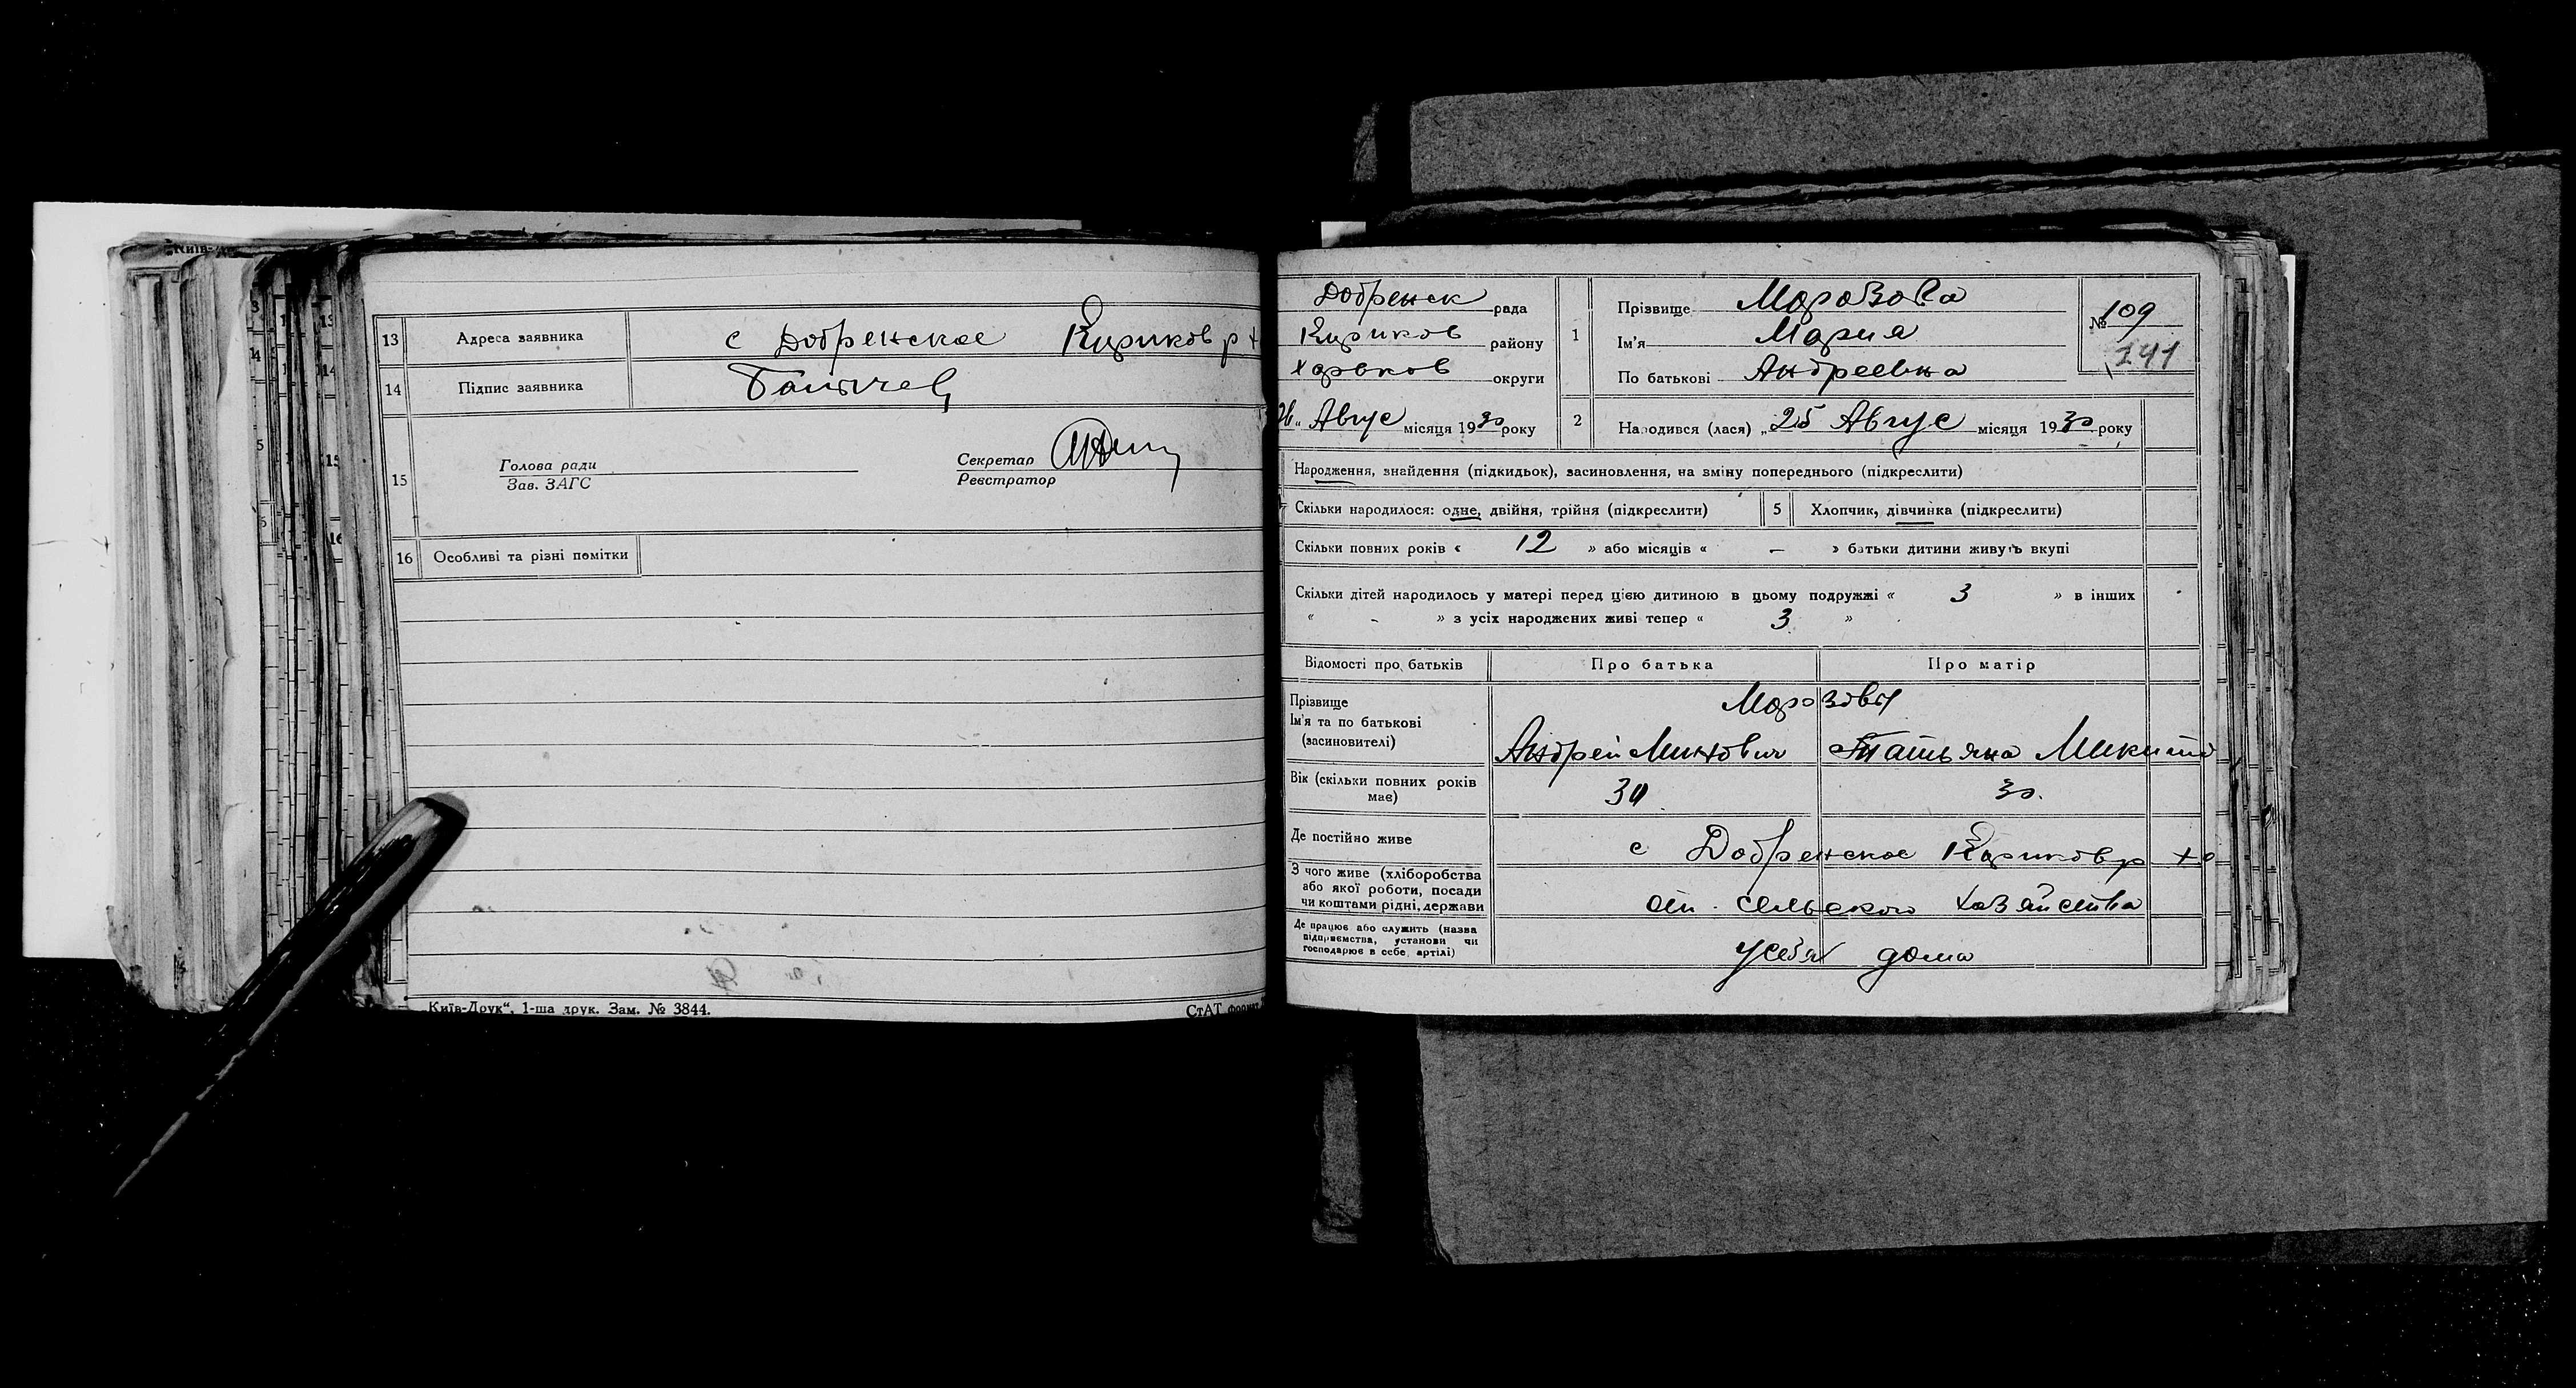 13 Адреса заявника с Добренское Кириков р х
14 Підпис заявника
15 Голова ради
Зав. ЗАГС
Секретар
Реєстратор
16 Особливі та різні помітки
„Київ-Друк“, 1-ша друк. Зам. № 3844. СтАТ формат
Добренск рада
Кириков району
Харьков округи
26„ Авгус місяця 1930 року
1 Прізвище Морозова
Ім'я Мария
По батькові Андреевна
№ 109
241
2 Народився (лася) „25 Авгус місяця 1930 року
Народження, знайдення (підкидьок), засиновлення, на зміну попереднього (підкреслити)
Скільки народилося: одне, двійня, трійня (підкреслити) 5 Хлопчик, дівчинка (підкреслити)
Скільки повних років « 12 » або місяців « — » батьки дитини живуть вкупі
Скільки дітей народилось у матері перед цією дитиною в цьому подружжі « 3 » в інших
« - » з усіх народжених живі тепер « 3 »
Відомості про батьків Про батька Про матір
Прізвище
Ім'я та по батькові
(засиновителі)
Морозовы
Андрей Татьяна Микито
Вік (скільки повних років
має)
30.
Де постійно живе с Добренское Кириков р ха
З чого живе (хліборобства
або якої роботи, посади
чи коштами рідні, держави
от. сельского хазяйства
Де працює або служить (назва
підприємства, установи чи
господарює в себе, артілі)
у себя дома